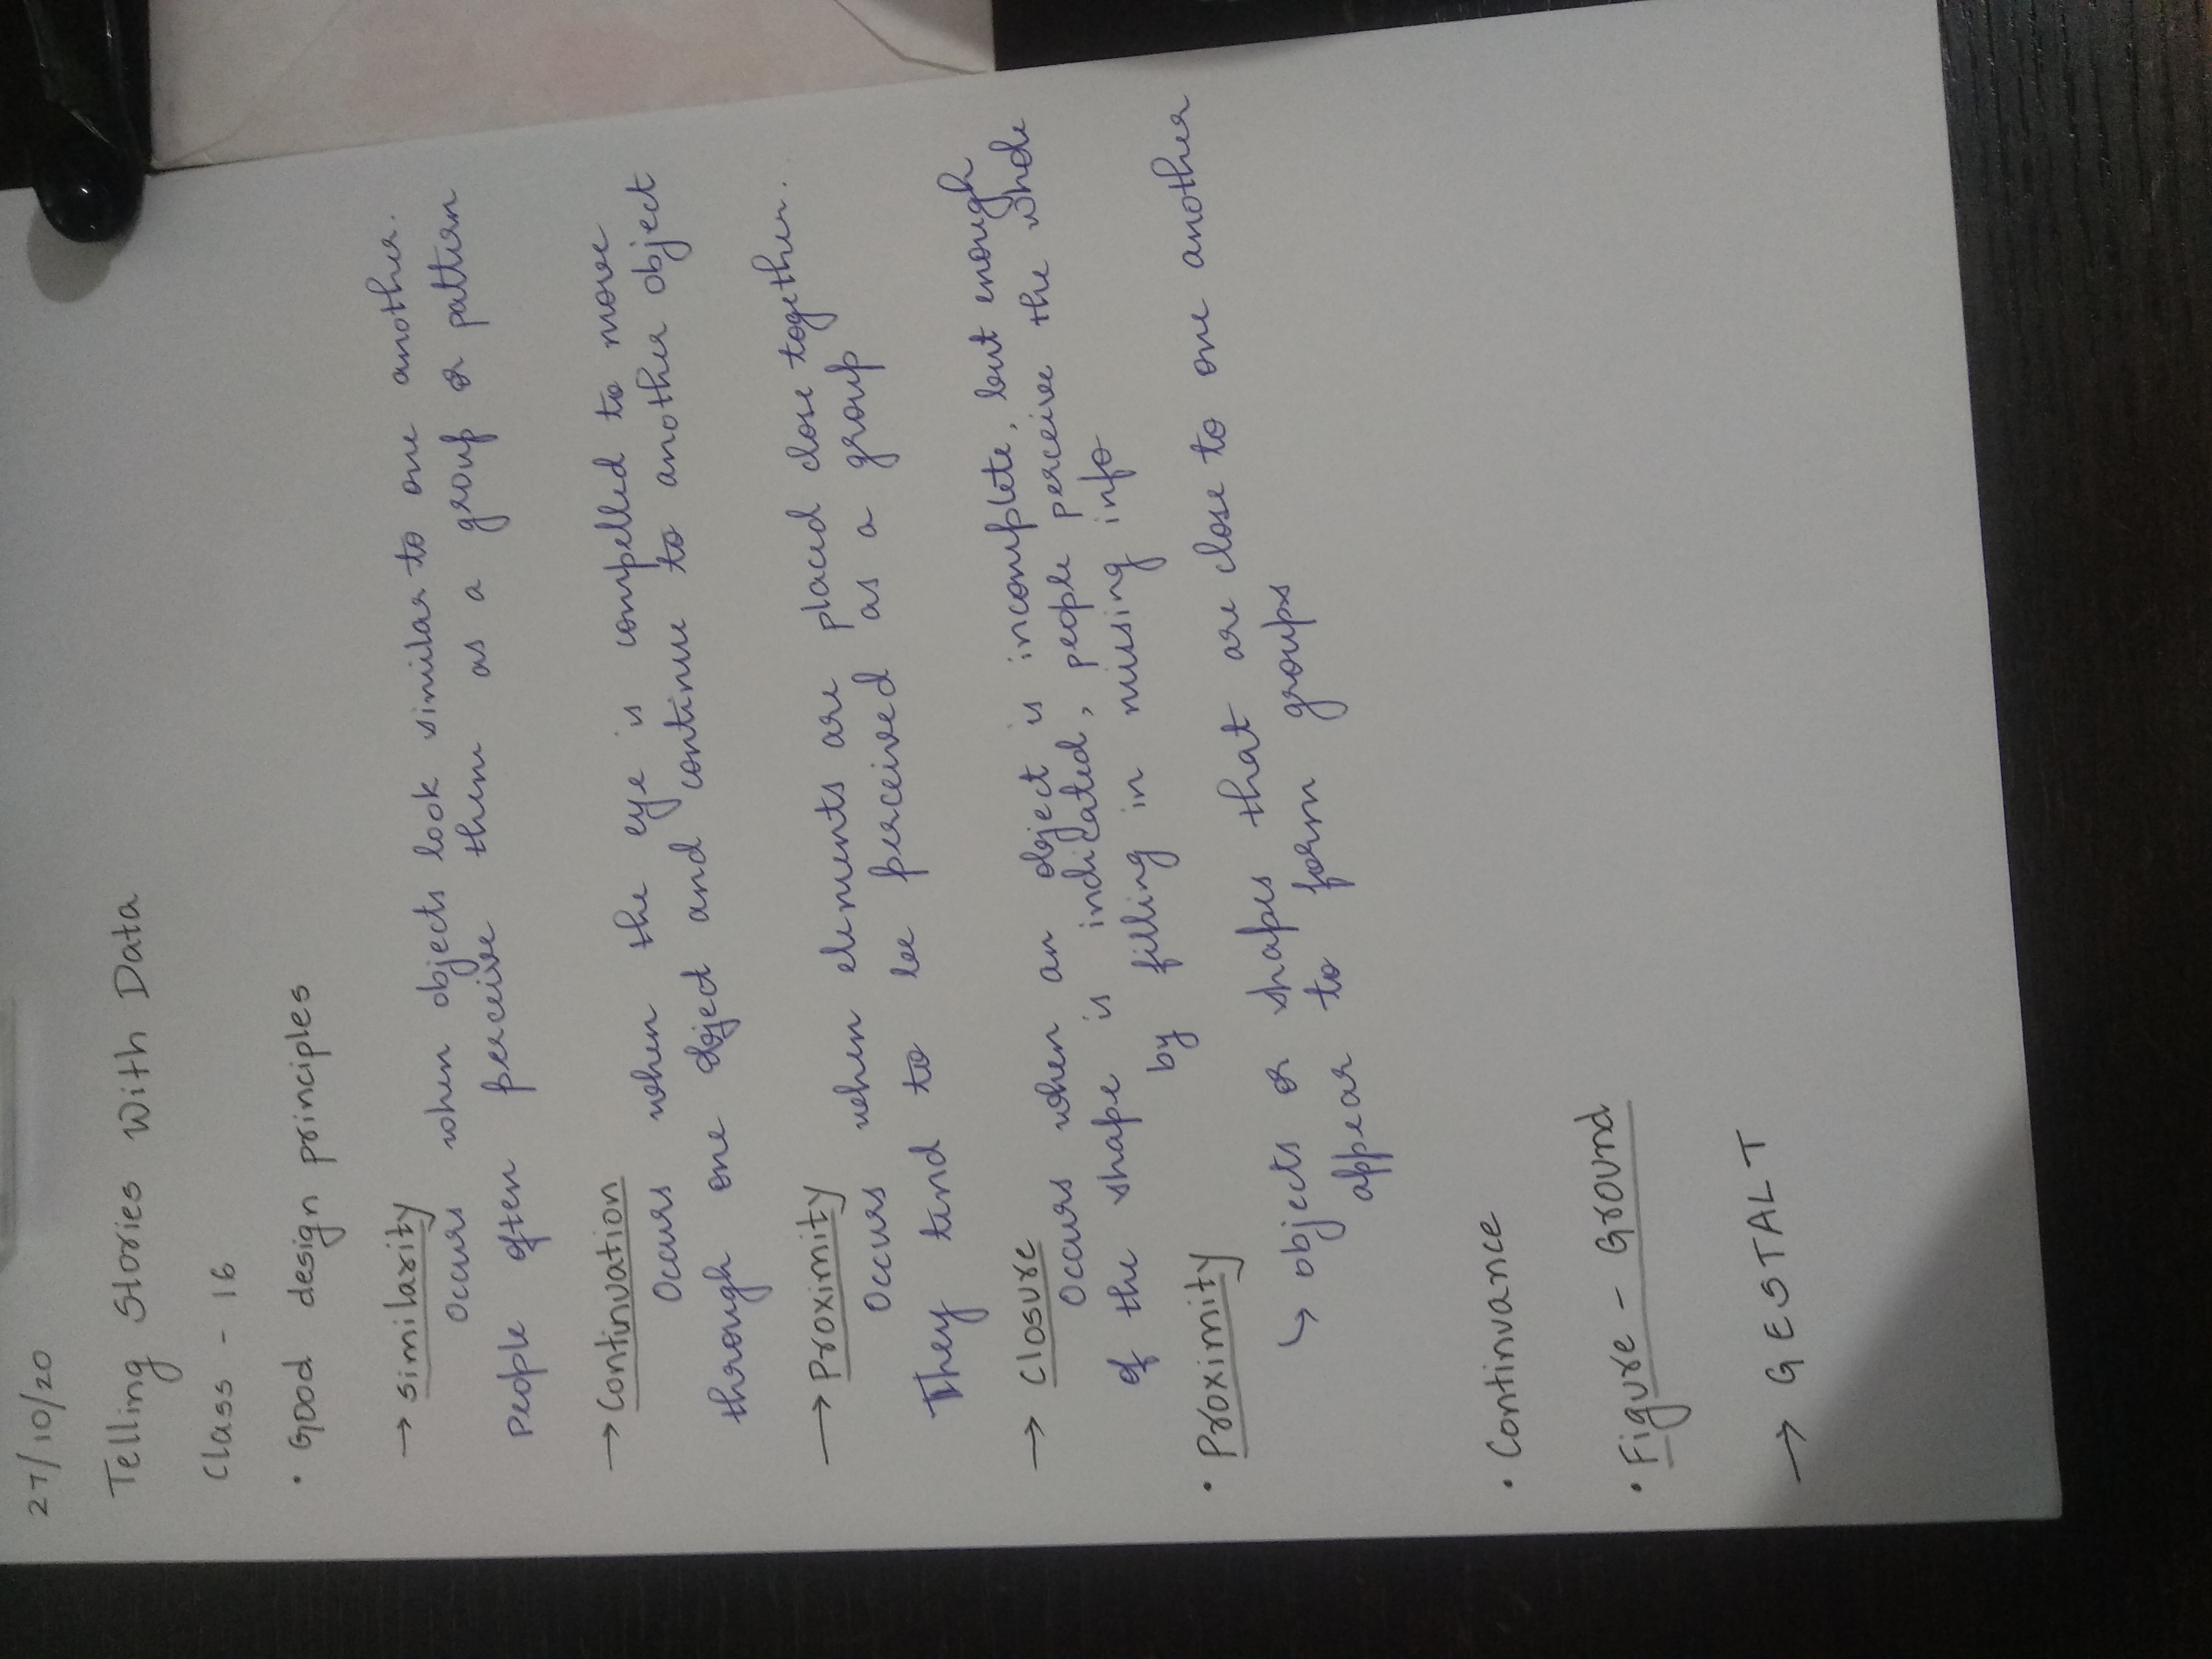 27/10/20
Telling Stories With Data
Class - 16
• Good design principles
→ similarity
Occurs when objects look similar to one another.
People often perceive them as a group or pattern
→ Continuation
Occurs when the eye is compelled to move
through one object and continue to another object
→ Proximity
Occurs when elements are placed close together.
They tend to be perceived as a group
→ Closure
Occurs when an object is incomplete, but enough
of the shape is indicated, people perceive the whole
by filling in missing info
• Proximity
↳ objects or shapes that are close to one another
appear to form groups
• Continuance
• Figure - Ground
→ GESTALT